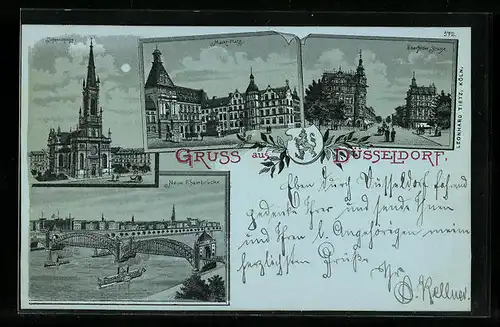 Johanniskirche
Markt-Platz
Elberfelder Strasse
572.
LEONHARD TIETZ, KÖLN.
GRUSS aus DÜSSELDORF.
Neue Rheinbrücke
Eben durch Düsseldorf fahrend
gedenke Ihrer und sende Ihnen
und Ihren l. Angehörigen meine
herzlichsten Grüße
Ihr
O. Kellner.